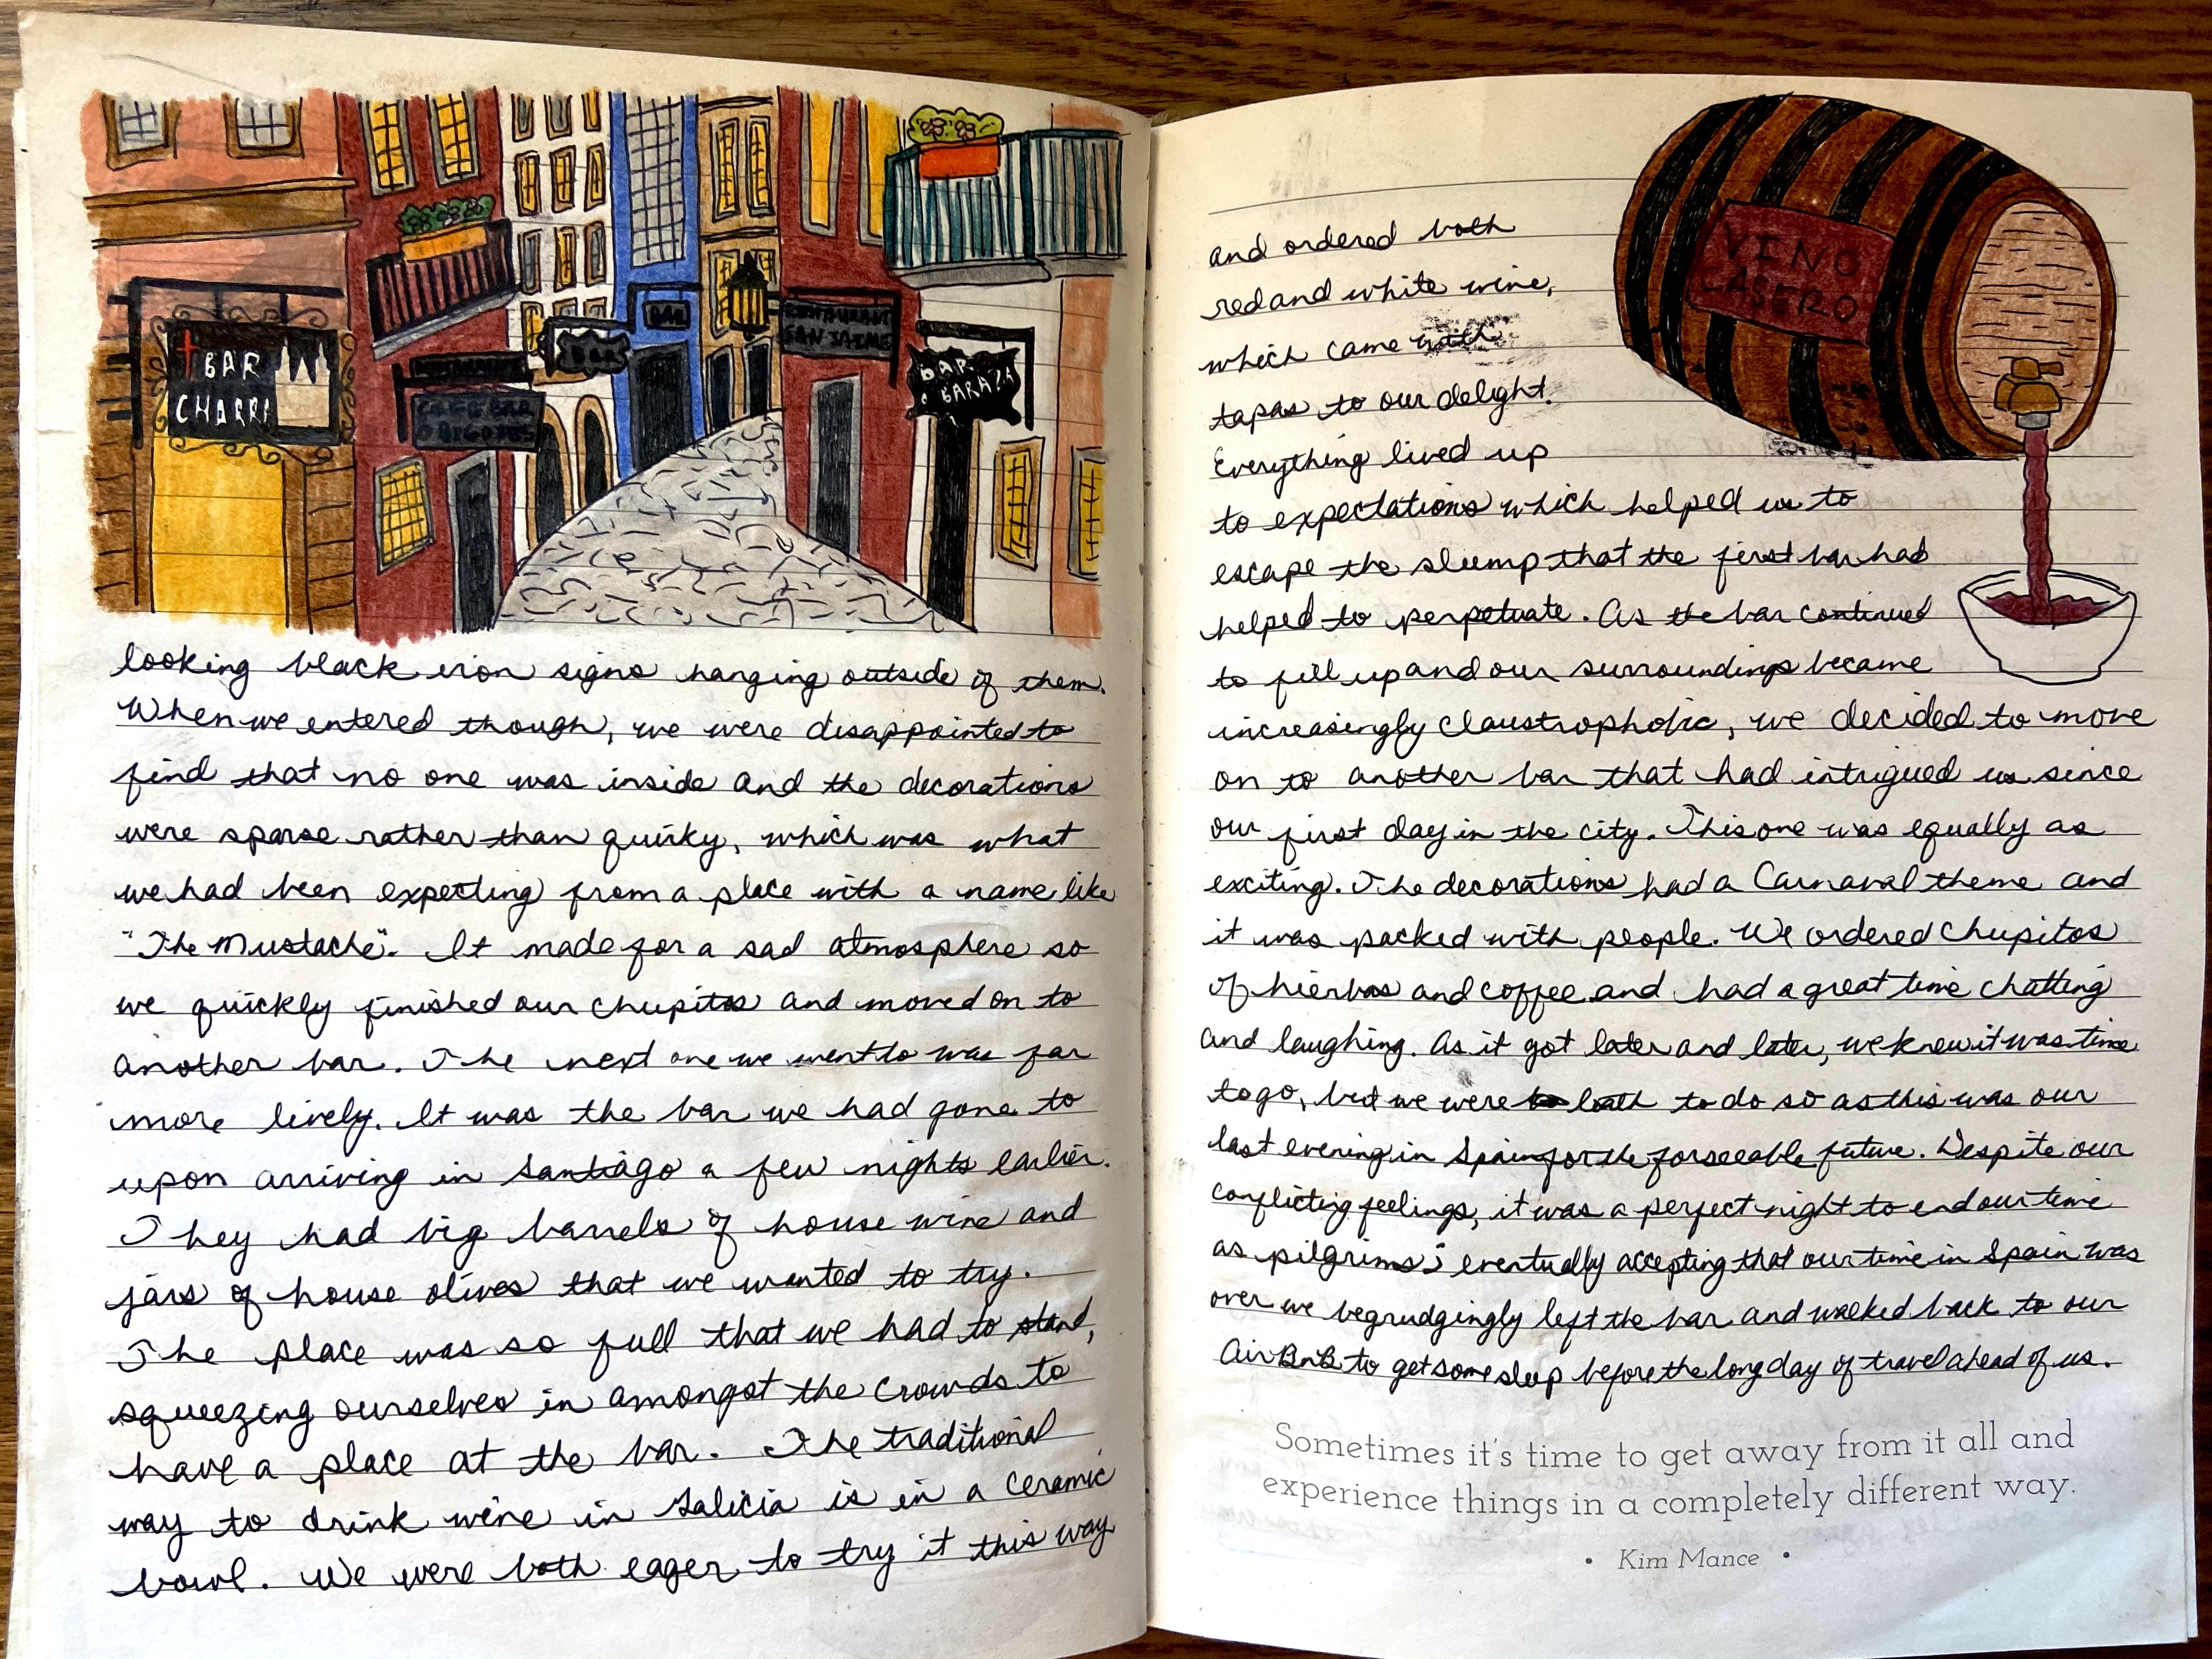 BAR
CHARRA
CAFE BAR
O BIGOTES
BAR
BAR
RESTAURANT
SAN JAIME
BAR
BARAZA
looking black iron signs hanging outside of them.
When we entered though, we were disappointed to
find that no one was inside and the decorations
were sparse rather than quirky, which was what
we had been expecting from a place with a name like
"The Mustache". It made for a sad atmosphere so
we quickly finished our chupitos and moved on to
another bar. The next one we went to was far
more lively. It was the bar we had gone to
upon arriving in Santiago a few nights earlier.
They had big barrels of house wine and
jars of house olives that we wanted to try.
The place was so full that we had to stand,
squeezing ourselves in amongst the crowds to
have a place at the bar. The traditional
way to drink wine in Galicia is in a ceramic
bowl. We were both eager to try it this way
VINO
CASERO
and ordered both
red and white wine,
which came with
tapas to our delight.
Everything lived up
to expectations which helped us to
escape the slump that the first bar had
helped to perpetuate. As the bar continued
to fill up and our surroundings became
increasingly claustrophobic, we decided to move
on to another bar that had intrigued us since
our first day in the city. This one was equally as
exciting. The decorations had a Carnaval theme and
it was packed with people. We ordered chupitos
of hierbas and coffee and had a great time chatting
and laughing. As it got later and later, we knew it was time
to go, but we were loath to do so as this was our
last evening in Spain for the forseeable future. Despite our
conflicting feelings, it was a perfect night to end our time
as pilgrims; eventually accepting that our time in Spain was
over we begrudgingly left the bar and walked back to our
AirBnB to get some sleep before the long day of travel ahead of us.
Sometimes it's time to get away from it all and
experience things in a completely different way.
• Kim Mance •